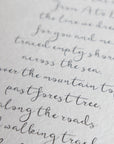 from A to
the line we dre
for you and me
traced empty shor
across the sea,
over the mountain to
past forest tree,
along the roads
walking track